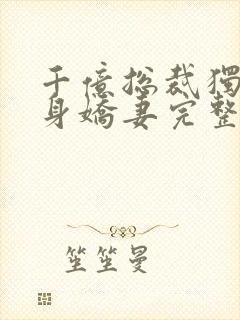 千億总裁獨
身嬌妻完整
笙笙曼